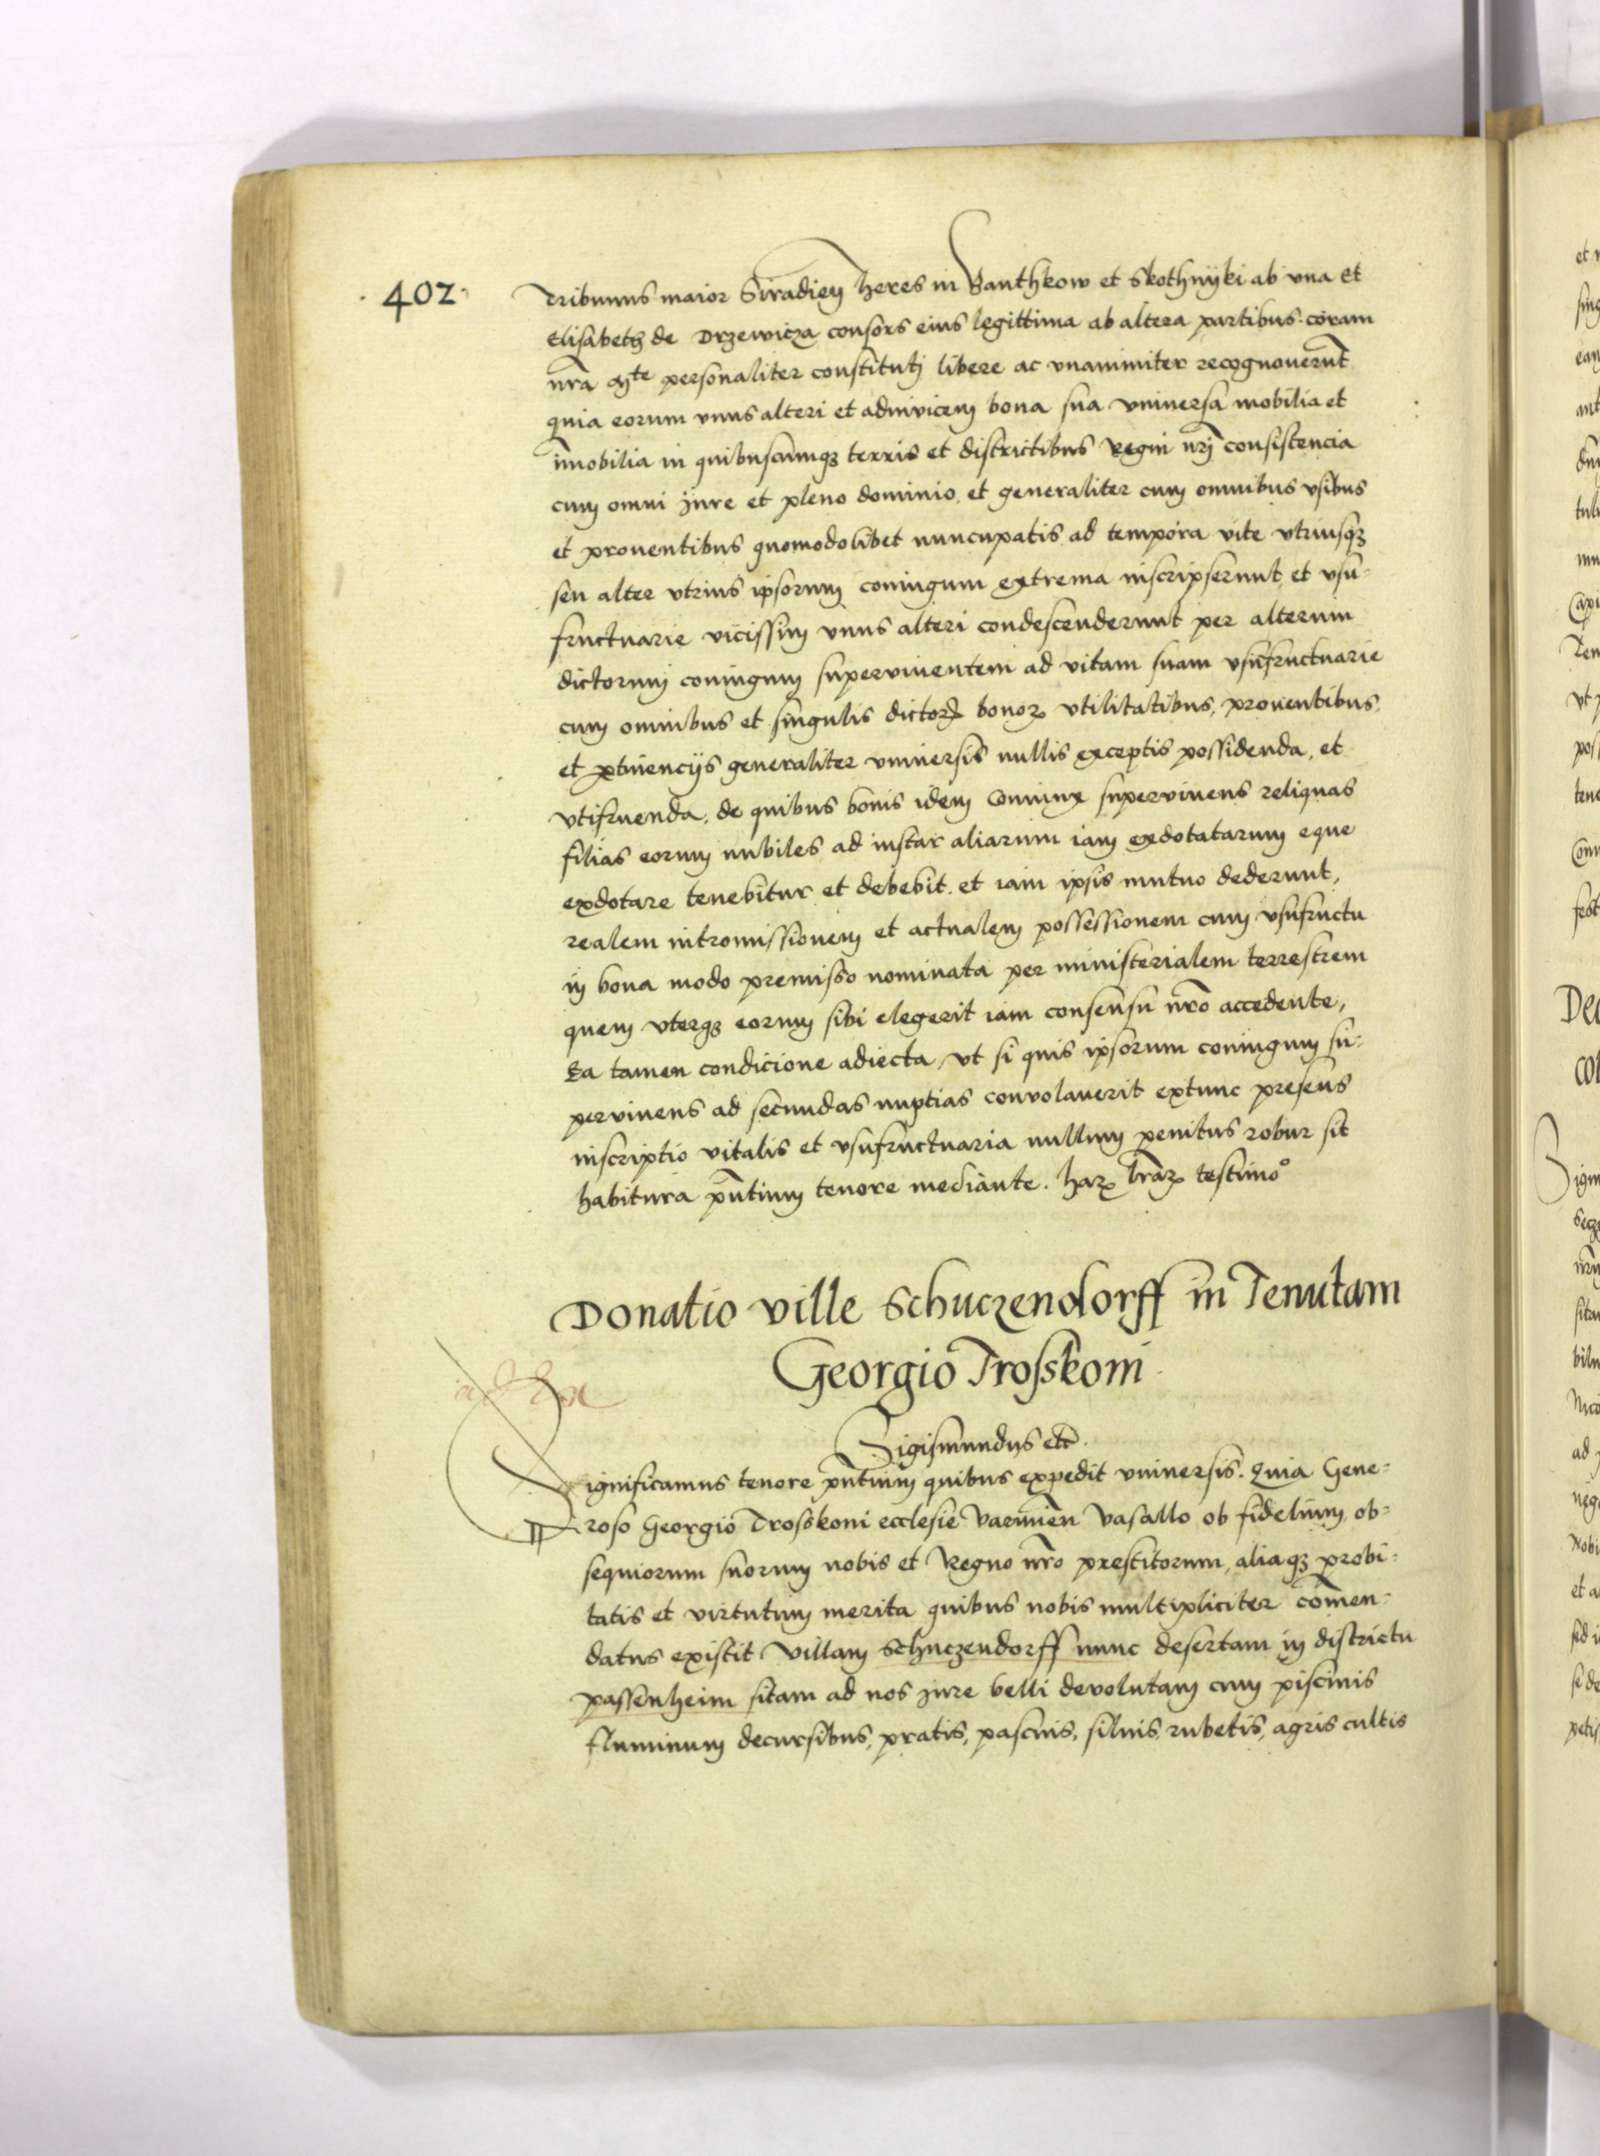 402
Tribunus maior Siradien heres in Banthkow et Skothnyki ab vna et
Elisabeth de Drzewicza consors eius legittima ab altera partibus coram
nra mte personaliter constituti libere ac vnanimiter recognouerut
quia eorum vnus alteri et adinuicem bona sua vniuersa mobilia et
imobilia in quibuscumqz terris et districtibus Regni nri consistencia
cum omni jure et pleno dominio, et generaliter cum omnibus vsibus
et prouentibus quomodolibet nuncupatis ad tempora vite vtriusqz
seu alter vtrius ipsorum coniugum extrema inscripserunt, et vsu-
fructuarie vicissim vnus alteri condescenderunt per alterum
dictorum coniugum superuiuentem ad vitam suam vsufructuarie
cum omnibus et singulis dictorꝝ bonoꝝ vtilitatibus, prouentibus,
et ꝑtinencijs generaliter vniuersis nullis exceptis possidenda, et
vtifruenda, de quibus bonis idem Coniunx superuiuens reliquas
filias eorum nubiles ad instar aliarum iam exdotatarum eque
exdotare tenebitur et debebit. et iam ipsis mutuo dederunt,
realem intromissionem et actualem possessionem cum vsufructu
in bona modo premisso nominata per ministerialem terrestrem
quem vterqz eorum sibi elegerit iam consensu nro accedente,
Ea tamen condicione adiecta, vt si quis ipsorum coniugum su-
peruiuens ad secundas nuptias conuolauerit extunc presens
inscriptio vitalis et vsufructuaria nullum penitus robur sit
habitura pntium tenore mediante. haꝝ lraꝝ testimo°
Donatio ville Schuczendorff in Tenutam
Georgio Trosskoni
Sigismundus etc.
Significamus tenore pntium quibus expedit vniuersis. Quia Gene-
roso Georgio Trosskoni ecclesie varmien vasallo ob fidelium ob-
sequiorum suorum nobis et Regno nro prestitorum, aliaqz probi-
tatis et virtutum merita quibus nobis multipliciter comen-
datus existit Villam Schuczendorff nunc desertam in districtu
passenheim sitam ad nos jure belli deuolutam cum piscinis
fluminum decursibus, pratis, pascuis, siluis, rubetis, agris cultis